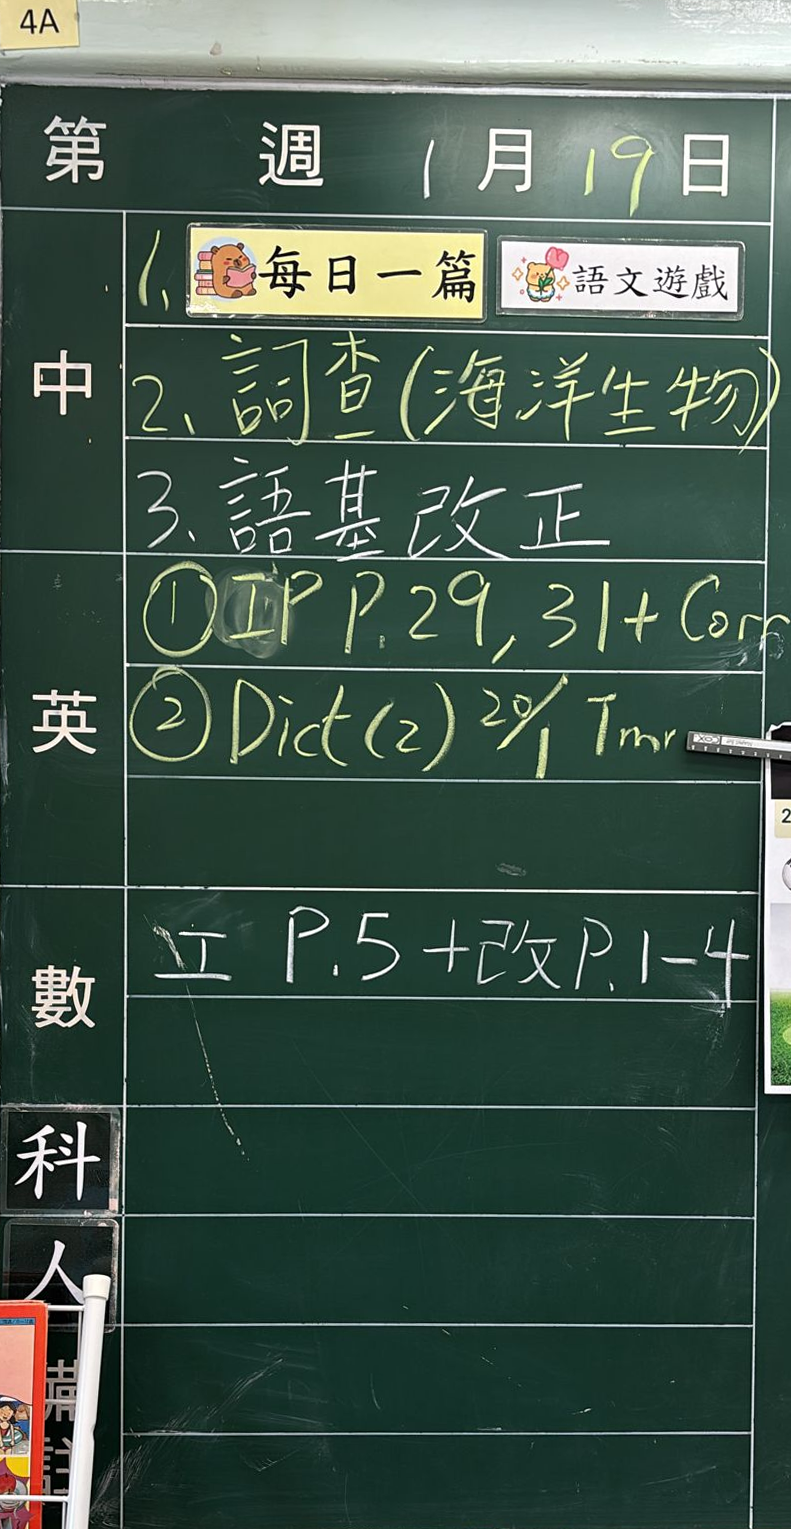 4A
第 週 1月19日
中
1. 每日一篇 語文遊戲
2. 詞查(海洋生物)
3. 語基改正
英
① IP P.29, 31+ Corr
② Dict(2) 20/1 Tmr
數
工 P.5+改P.1-4
科
人
備註
2